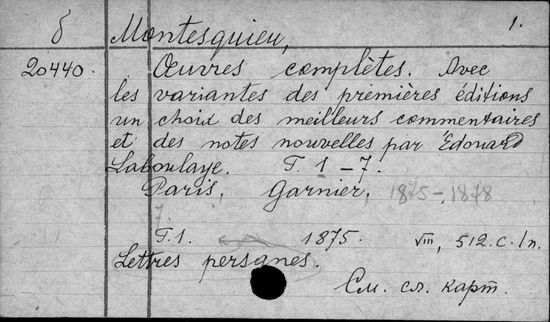 δ Montesquieu, 1.
20440. Œuvres complètes. Avec
les variantes des premières éditions
un choix des meilleurs commentaires
et des notes nouvelles par Edouard
Laboulaye. T. 1-7.
Paris, Garnier, 1875-1878
7.
T.1. 1875. VIII, 512.c./п.
Lettres persanes.
См. сл. карт.